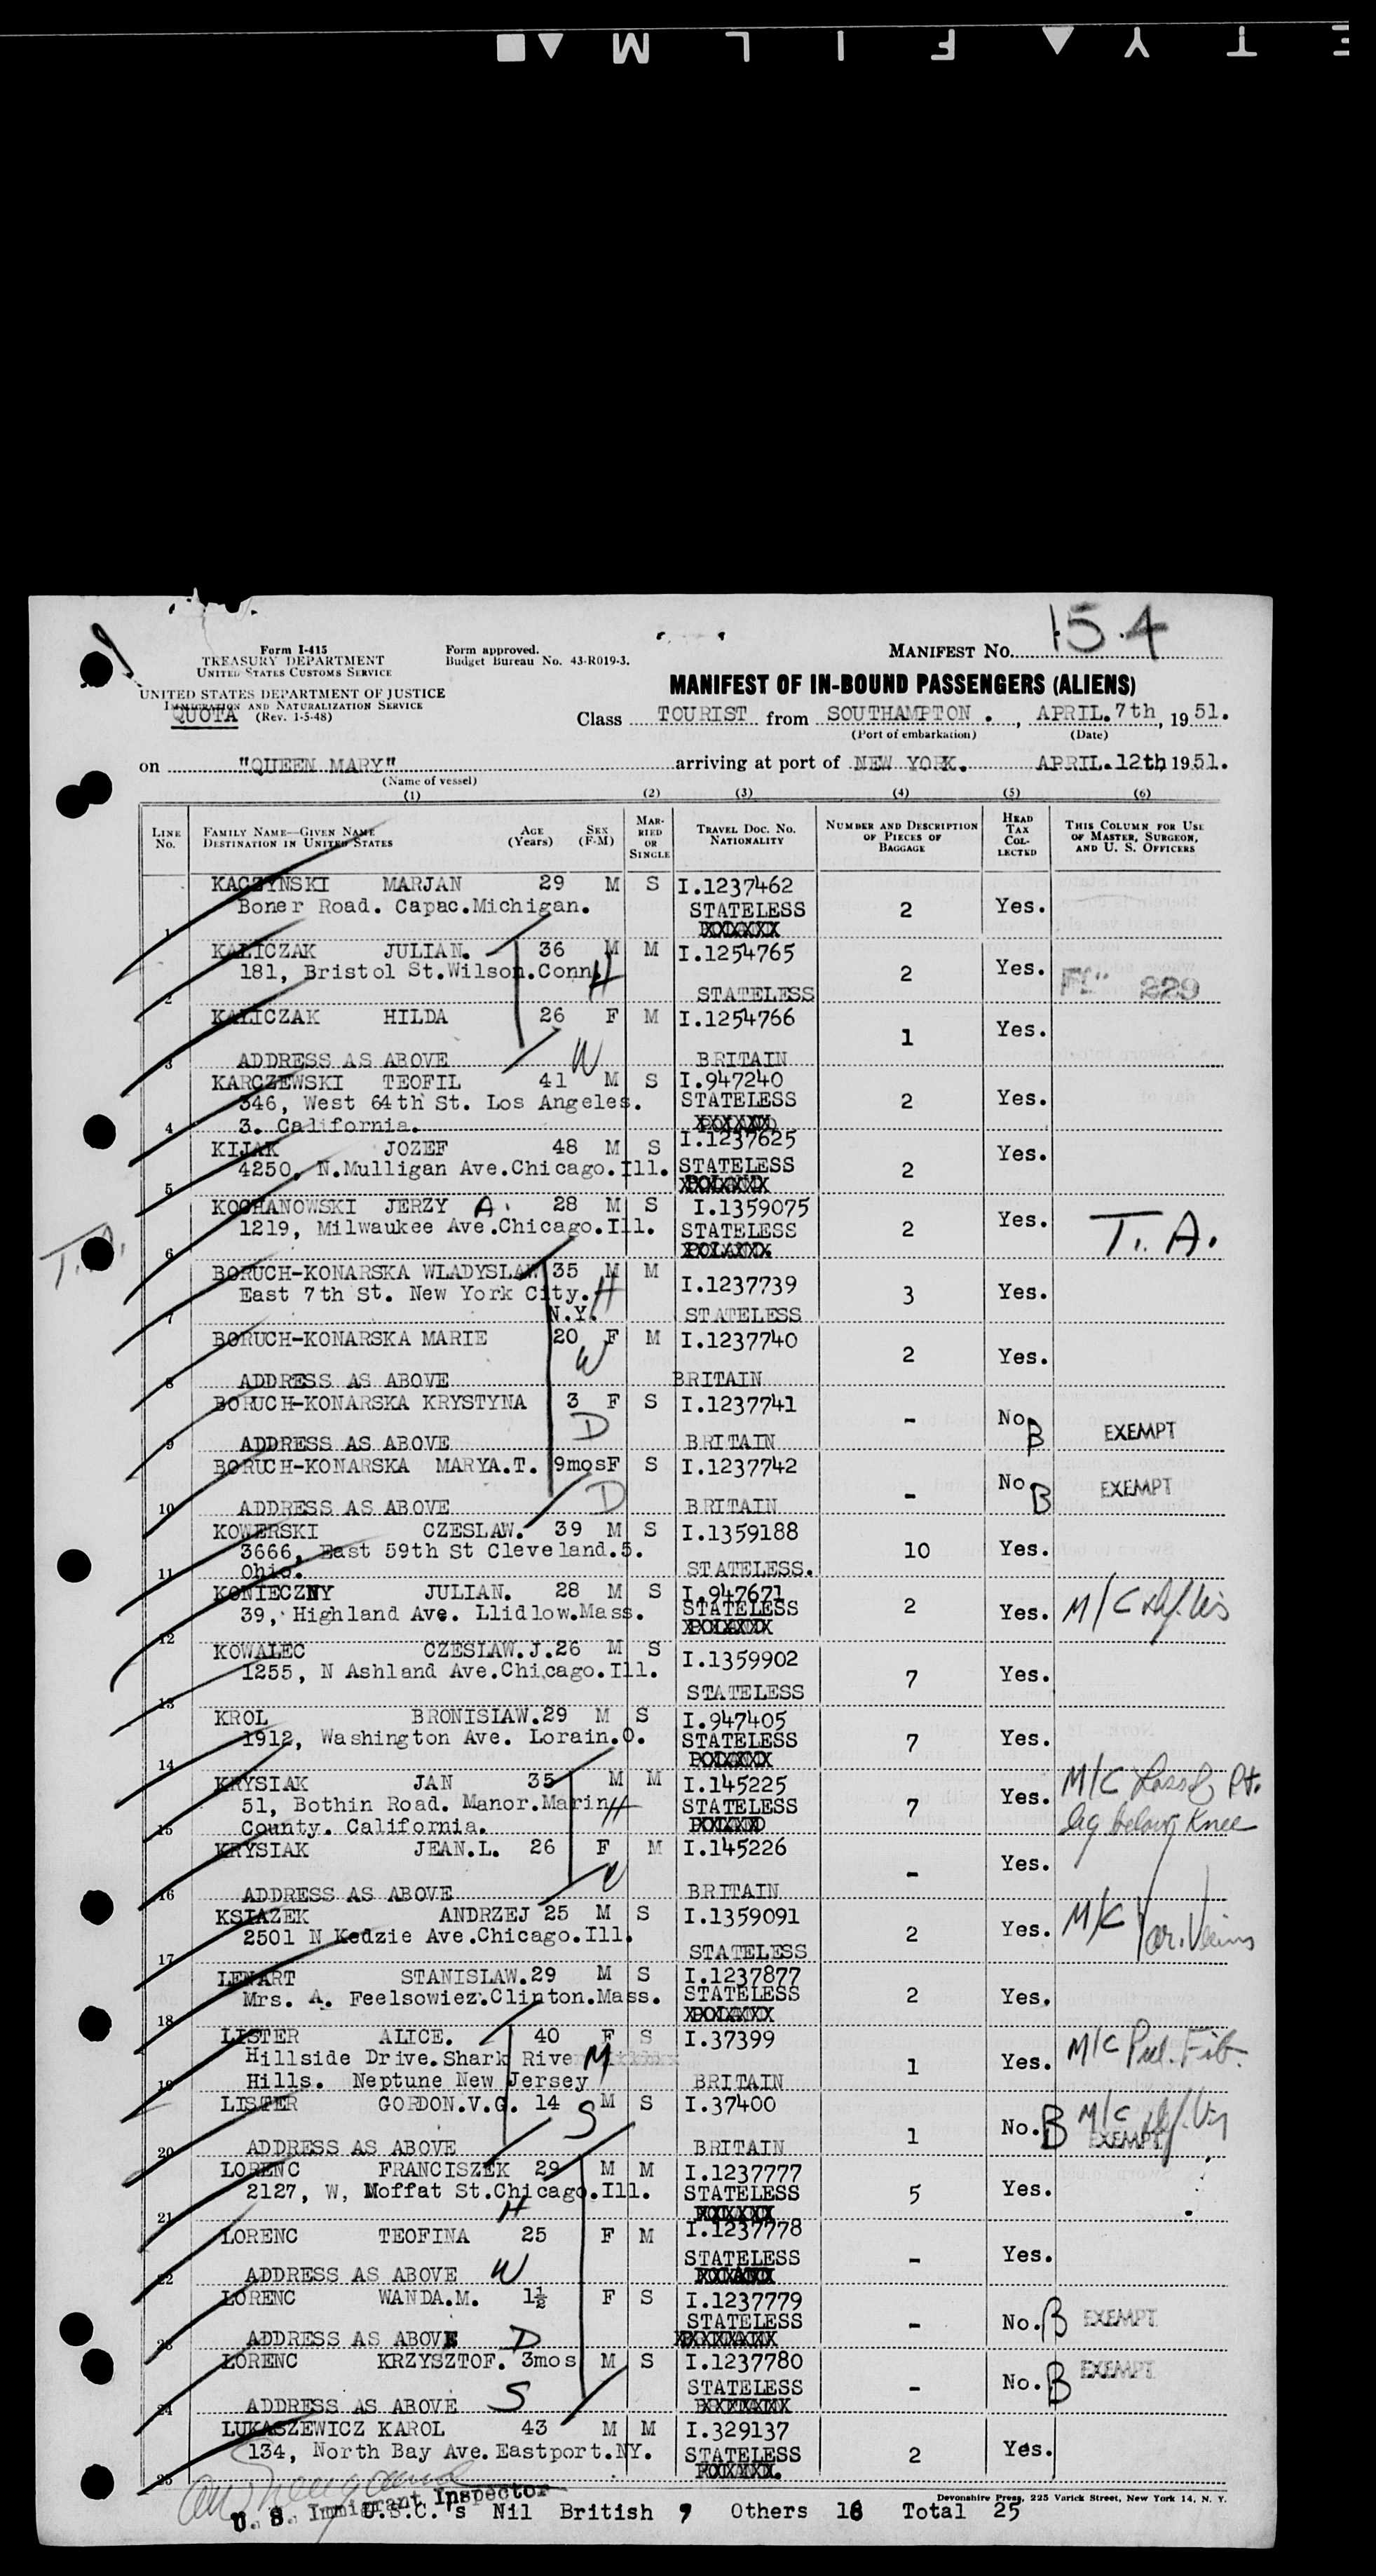 E T Y ▲ F I L M ▲ ■
154
Form I-415
TREASURY DEPARTMENT
UNITED STATES CUSTOMS SERVICE
Form approved.
Budget Bureau No. 43-R019-3.
MANIFEST NO.
UNITED STATES DEPARTMENT OF JUSTICE
IMMIGRATION AND NATURALIZATION SERVICE
QUOTA (Rev. 1-5-48)
MANIFEST OF IN-BOUND PASSENGERS (ALIENS)
Class TOURIST from SOUTHAMPTON . , APRIL.7th, 1951.
(Port of embarkation) (Date)
on "QUEEN MARY" arriving at port of NEW YORK. APRIL.12th, 1951.
(Name of vessel)
(1) (2) (3) (4) (5) (6)
LINE No. FAMILY NAME—GIVEN NAME DESTINATION IN UNITED STATES AGE (Years) SEX (F-M) MARRIED OR SINGLE TRAVEL DOC. NO. NATIONALITY NUMBER AND DESCRIPTION OF PIECES OF BAGGAGE HEAD TAX COLLECTED THIS COLUMN FOR USE OF MASTER, SURGEON, AND U. S. OFFICERS
KACZYNSKI MARJAN 29 M S I.1237462
Boner Road. Capac.Michigan. STATELESS 2 Yes.
1
KALICZAK JULIAN. 36 M M I.1254765
181, Bristol St.Wilson.Conn. H 2 Yes.
2 STATELESS 229
KALICZAK HILDA 26 F M I.1254766
1 Yes.
3 ADDRESS AS ABOVE W BRITAIN
KARCZEWSKI TEOFIL 41 M S I.947240
346, West 64th St. Los Angeles. STATELESS 2 Yes.
4 3. California.
KIJAK JOZEF 48 M S I.1237625
4250, N.Mulligan Ave.Chicago.Ill. STATELESS 2 Yes.
5
KOCHANOWSKI JERZY A. 28 M S I.1359075
1219, Milwaukee Ave.Chicago.Ill. STATELESS 2 Yes. T. A.
T. A. 6
BORUCH-KONARSKA WLADYSLAW 35 M M
East 7th St. New York City. H I.1237739 3 Yes.
7 N.Y. STATELESS
BORUCH-KONARSKA MARIE 20 F M I.1237740
W 2 Yes.
8 ADDRESS AS ABOVE BRITAIN
BORUCH-KONARSKA KRYSTYNA 3 F S I.1237741
D - No B EXEMPT
9 ADDRESS AS ABOVE BRITAIN
BORUCH-KONARSKA MARYA.T. 9mos F S I.1237742
D - No B EXEMPT
10 ADDRESS AS ABOVE BRITAIN
KOWERSKI CZESLAW. 39 M S I.1359188
3666, East 59th St Cleveland.5. 10 Yes.
11 Ohio. STATELESS.
KONIECZNY JULIAN. 28 M S I.947671
39, Highland Ave. Llidlow.Mass. STATELESS 2 Yes. M/C
12
KOWALEC CZESLAW.J. 26 M S I.1359902
1255, N Ashland Ave.Chicago.Ill. 7 Yes.
13 STATELESS
KROL BRONISIAW. 29 M S I.947405
1912, Washington Ave. Lorain.O. STATELESS 7 Yes.
14
KRYSIAK JAN 35 M M I.145225
51, Bothin Road. Manor.Marin H STATELESS 7 Yes. M/C Loss of Rt.
15 County. California. leg below Knee
KRYSIAK JEAN.L. 26 F M I.145226
W - Yes.
16 ADDRESS AS ABOVE BRITAIN
KSIAZEK ANDRZEJ 25 M S I.1359091
2501 N Kedzie Ave.Chicago.Ill. 2 Yes. M/C Var.Veins
17 STATELESS
LENART STANISLAW. 29 M S I.1237877
Mrs. A. Feelsowiez.Clinton.Mass. STATELESS 2 Yes.
18
LISTER ALICE. 40 F S I.37399
Hillside Drive.Shark River M 1 Yes. M/C Pul. Fib.
19 Hills. Neptune New Jersey BRITAIN
LISTER GORDON.V.G. 14 M S I.37400
S 1 No. B M/C EXEMPT
20 ADDRESS AS ABOVE BRITAIN
LORENC FRANCISZEK 29 M M I.1237777
2127, W, Moffat St.Chicago.Ill. STATELESS 5 Yes.
21 H
LORENC TEOFINA 25 F M I.1237778
STATELESS - Yes.
22 ADDRESS AS ABOVE W
LORENC WANDA.M. 1½ F S I.1237779
STATELESS - No. B EXEMPT
23 ADDRESS AS ABOVE D
LORENC KRZYSZTOF. 3mos M S I.1237780
STATELESS - No. B EXEMPT
24 ADDRESS AS ABOVE S
LUKASZEWICZ KAROL 43 M M I.329137
134, North Bay Ave. Eastport.NY. STATELESS 2 Yes.
25
Devonshire Press, 225 Varick Street, New York 14, N. Y.
U. S. Immigrant Inspector
U.S.C.'s Nil British 7 Others 18 Total 25